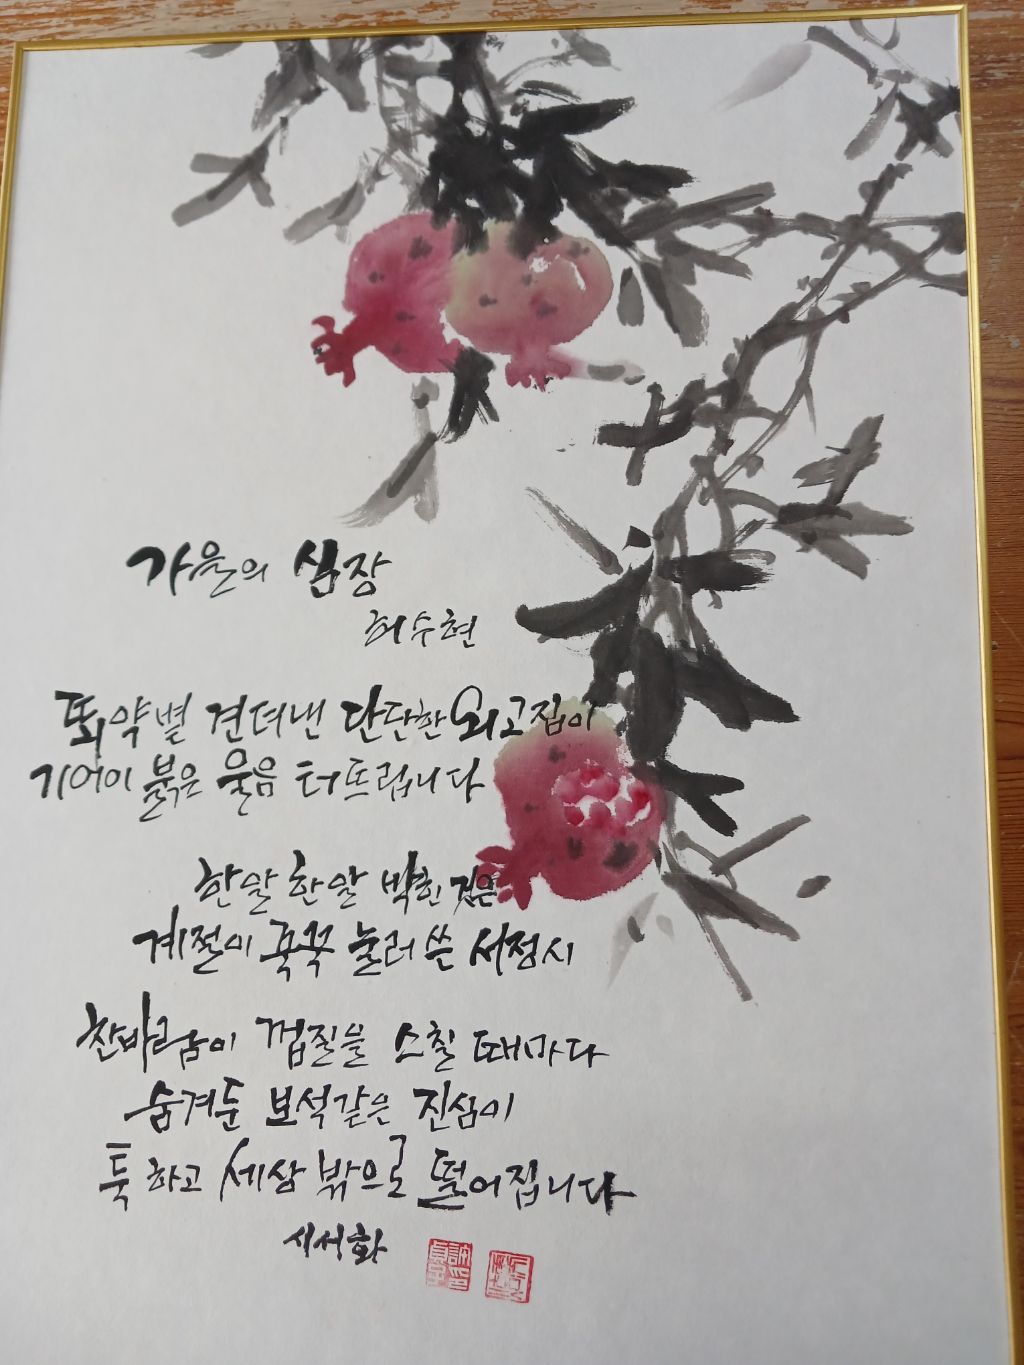 가을의 심장
허수현
뙤약볕 견뎌낸 단단한 외고집이
기어이 붉은 울음 터뜨립니다
한알 한알 박힌 것은
계절이 꾹꾹 눌러 쓴 서정시
찬바람이 껍질을 스칠 때마다
숨겨둔 보석같은 진심이
툭 하고 세상 밖으로 떨어집니다
시서화